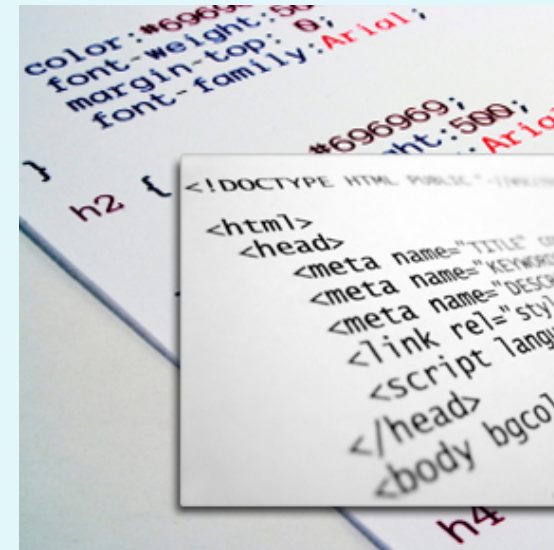 color:#69696
font-weight:50
margin-top: 0;
font-family:Arial;
}
#696969;
ht:500;
Arial
h2 {
<!DOCTYPE HTML PUBLIC "-
<html>
<head>
<meta name="TITLE" CO
<meta name="KEYWORDS
<meta name="DESCR
<link rel="styl
<script langu
</head>
<body bgcol
h4